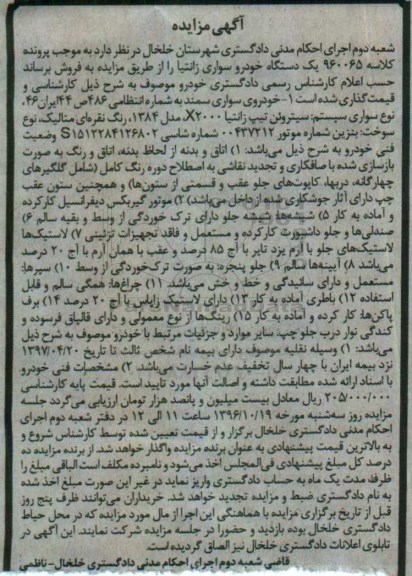 آگهی مزایده
شعبه دوم اجرای احکام مدنی دادگستری شهرستان خلخال در نظر دارد به موجب پرونده
کلاسه ۹۶۰۰۶۵ یک دستگاه خودرو سواری زانتیا را از طریق مزایده به فروش برساند
حسب اعلام کارشناس رسمی دادگستری خودرو موصوف به شرح ذیل کارشناسی و
قیمت‌گذاری شده است ۱- خودروی سواری سمند به شماره انتظامی ۴۸۶ص۴۴ایران۴۶،
نوع سواری سیستم: سیتروئن تیپ زانتیا X۲۰۰۰، مدل ۱۳۸۴، رنگ نقره‌ای متالیک، نوع
سوخت: بنزین شماره موتور ۰۰۴۳۷۲۱۲ شماره شاسی S۱۵۱۲۲۸۴۱۲۶۸۰۲ وضعیت
فنی خودرو به شرح ذیل می‌باشد: ۱) اتاق و بدنه از لحاظ بدنه، اتاق و رنگ به صورت
بازسازی شده با صافکاری و تجدید نقاشی به اصطلاح دوره رنگ کامل (شامل گلگیرهای
چهارگانه، دربها، کاپوت‌های جلو عقب و قسمتی از ستون‌ها) و همچنین ستون عقب
چپ دارای آثار جوشکاری شده از داخل می‌باشد) ۲) موتور گیربکس دیفرانسیل کارکرده
و آماده به کار ۵) شیشه‌ها شیشه جلو دارای ترک خوردگی از وسط و بقیه سالم ۶)
صندلی‌ها و جلو داشبورت کارکرده و مستعمل و فاقد تجهیزات تزئینی ۷) لاستیک‌ها
لاستیک‌های جلو با آرم یزد تایر با آج ۸۵ درصد و عقب با همان آرم با آج ۲۰ درصد
می‌باشد ۸) آیینه‌ها سالم ۹) جلو پنجره: به صورت ترک‌خوردگی از وسط ۱۰) سپرها:
مستعمل و دارای سائیدگی و خط و خش می‌باشد. ۱۱) چراغ‌ها: همگی سالم و قابل
استفاده ۱۲) باطری آماده به کار ۱۳) دارای لاستیک زاپاس با آج ۲۰ درصد ۱۴) برف
پاکن‌ها: کار کرده و آماده به کار ۱۵) رینگ‌ها از نوع معمولی و دارای قالپاق فرسوده و
کندگی نوار درب جلو چپ، سایر موارد و جزئیات مرتبط با خودرو موصوف به شرح ذیل
می‌باشد: ۱) وسیله نقلیه موصوف دارای بیمه نام شخص ثالث تا تاریخ ۱۳۹۷/۰۴/۲۰
نزد بیمه ایران با چهار سال تخفیف عدم خسارت می‌باشد. ۲) مشخصات فنی خودرو
با اسناد ارائه شده مطابقت داشته و اصالت آنها مورد تایید است. قیمت پایه کارشناسی
۲۰۵/۰۰۰/۰۰۰ ریال معادل بیست میلیون و پانصد هزار تومان ارزیابی می‌گردد جلسه
مزایده روز سه‌شنبه مورخه ۱۳۹۶/۱۰/۱۹ ساعت ۱۱ الی ۱۲ در دفتر شعبه دوم اجرای
احکام مدنی دادگستری خلخال برگزار و از قیمت تعیین شده توسط کارشناس شروع و
به بالاترین قیمت پیشنهادی به عنوان برنده مزایده واگذار خواهد شد. از برنده مزایده ده
درصد کل مبلغ پیشنهادی فی‌المجلس اخذ می‌شود و نامبرده مکلف است الباقی مبلغ را
ظرف مدت یک ماه به حساب دادگستری واریز نماید در غیر این صورت مبلغ اخذ شده
به نام دادگستری ضبط و مزایده تجدید خواهد شد. خریداران می‌توانند ظرف پنج روز
قبل از تاریخ برگزاری مزایده با هماهنگی این اجرا از مال مورد مزایده که در محل حیاط
دادگستری خلخال بوده بازدید و حضورا در جلسه مزایده شرکت نمایند. این آگهی در
تابلوی اعلانات دادگستری خلخال نیز الصاق گردیده است.
قاضی شعبه دوم اجرای احکام مدنی دادگستری خلخال-ناظمی